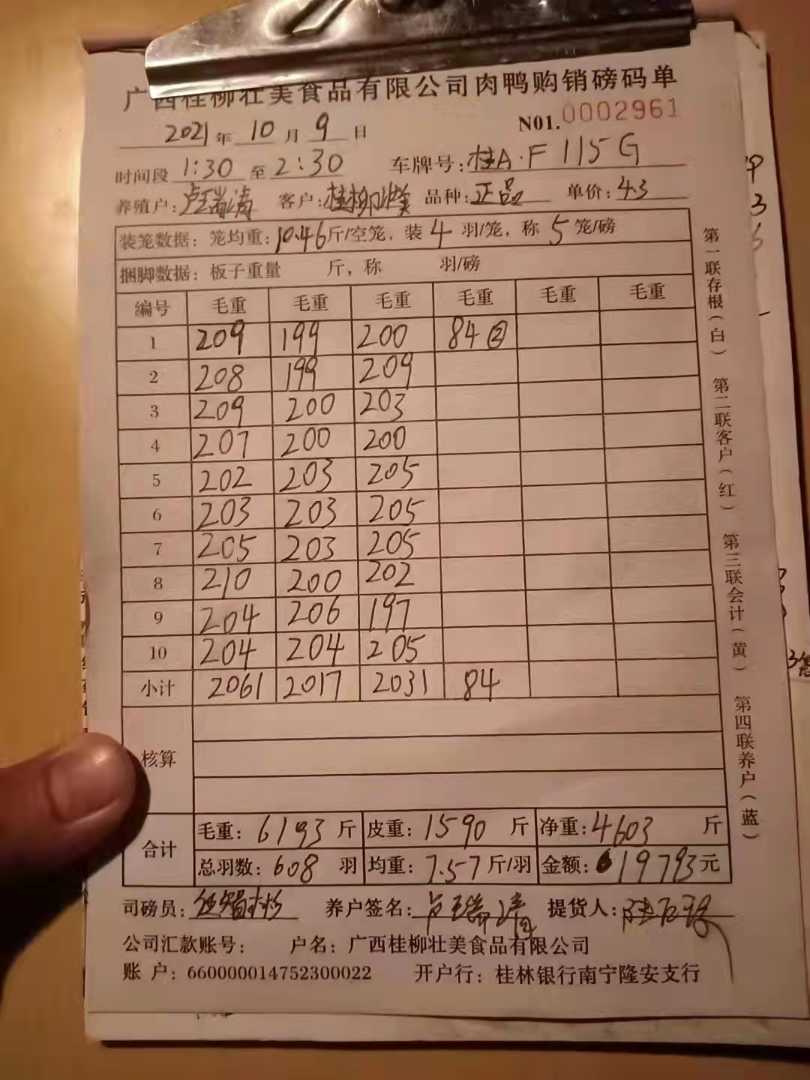 广西桂柳壮美食品有限公司肉鸭购销磅码单
2021年 10月 9日 N01.0002961
时间段 1:30 至 2:30 车牌号: 桂A·F115G
养殖户: 卢瑞清 客户: 桂柳壮美 品种: 正品 单价: 4.3
装笼数据: 笼均重: 10.46斤/空笼, 装 4 羽/笼, 称 5 笼/磅
捆脚数据: 板子重量 斤, 称 羽/磅
编号 毛重 毛重 毛重 毛重 毛重 毛重
1 209 199 200 84②
2 208 199 209
3 209 200 203
4 207 200 200
5 202 203 205
6 203 203 205
7 205 203 205
8 210 200 202
9 204 206 197
10 204 204 205
小计 2061 2017 2031 84
核算
合计 毛重: 6193 斤 皮重: 1590 斤 净重: 4603 斤
总羽数: 608 羽 均重: 7.57斤/羽 金额: 19793元
司磅员: 养户签名: 提货人:
公司汇款账号: 户名: 广西桂柳壮美食品有限公司
账 户: 660000014752300022 开户行: 桂林银行南宁隆安支行
第一联存根(白) 第二联客户(红) 第三联会计(黄) 第四联养户(蓝)